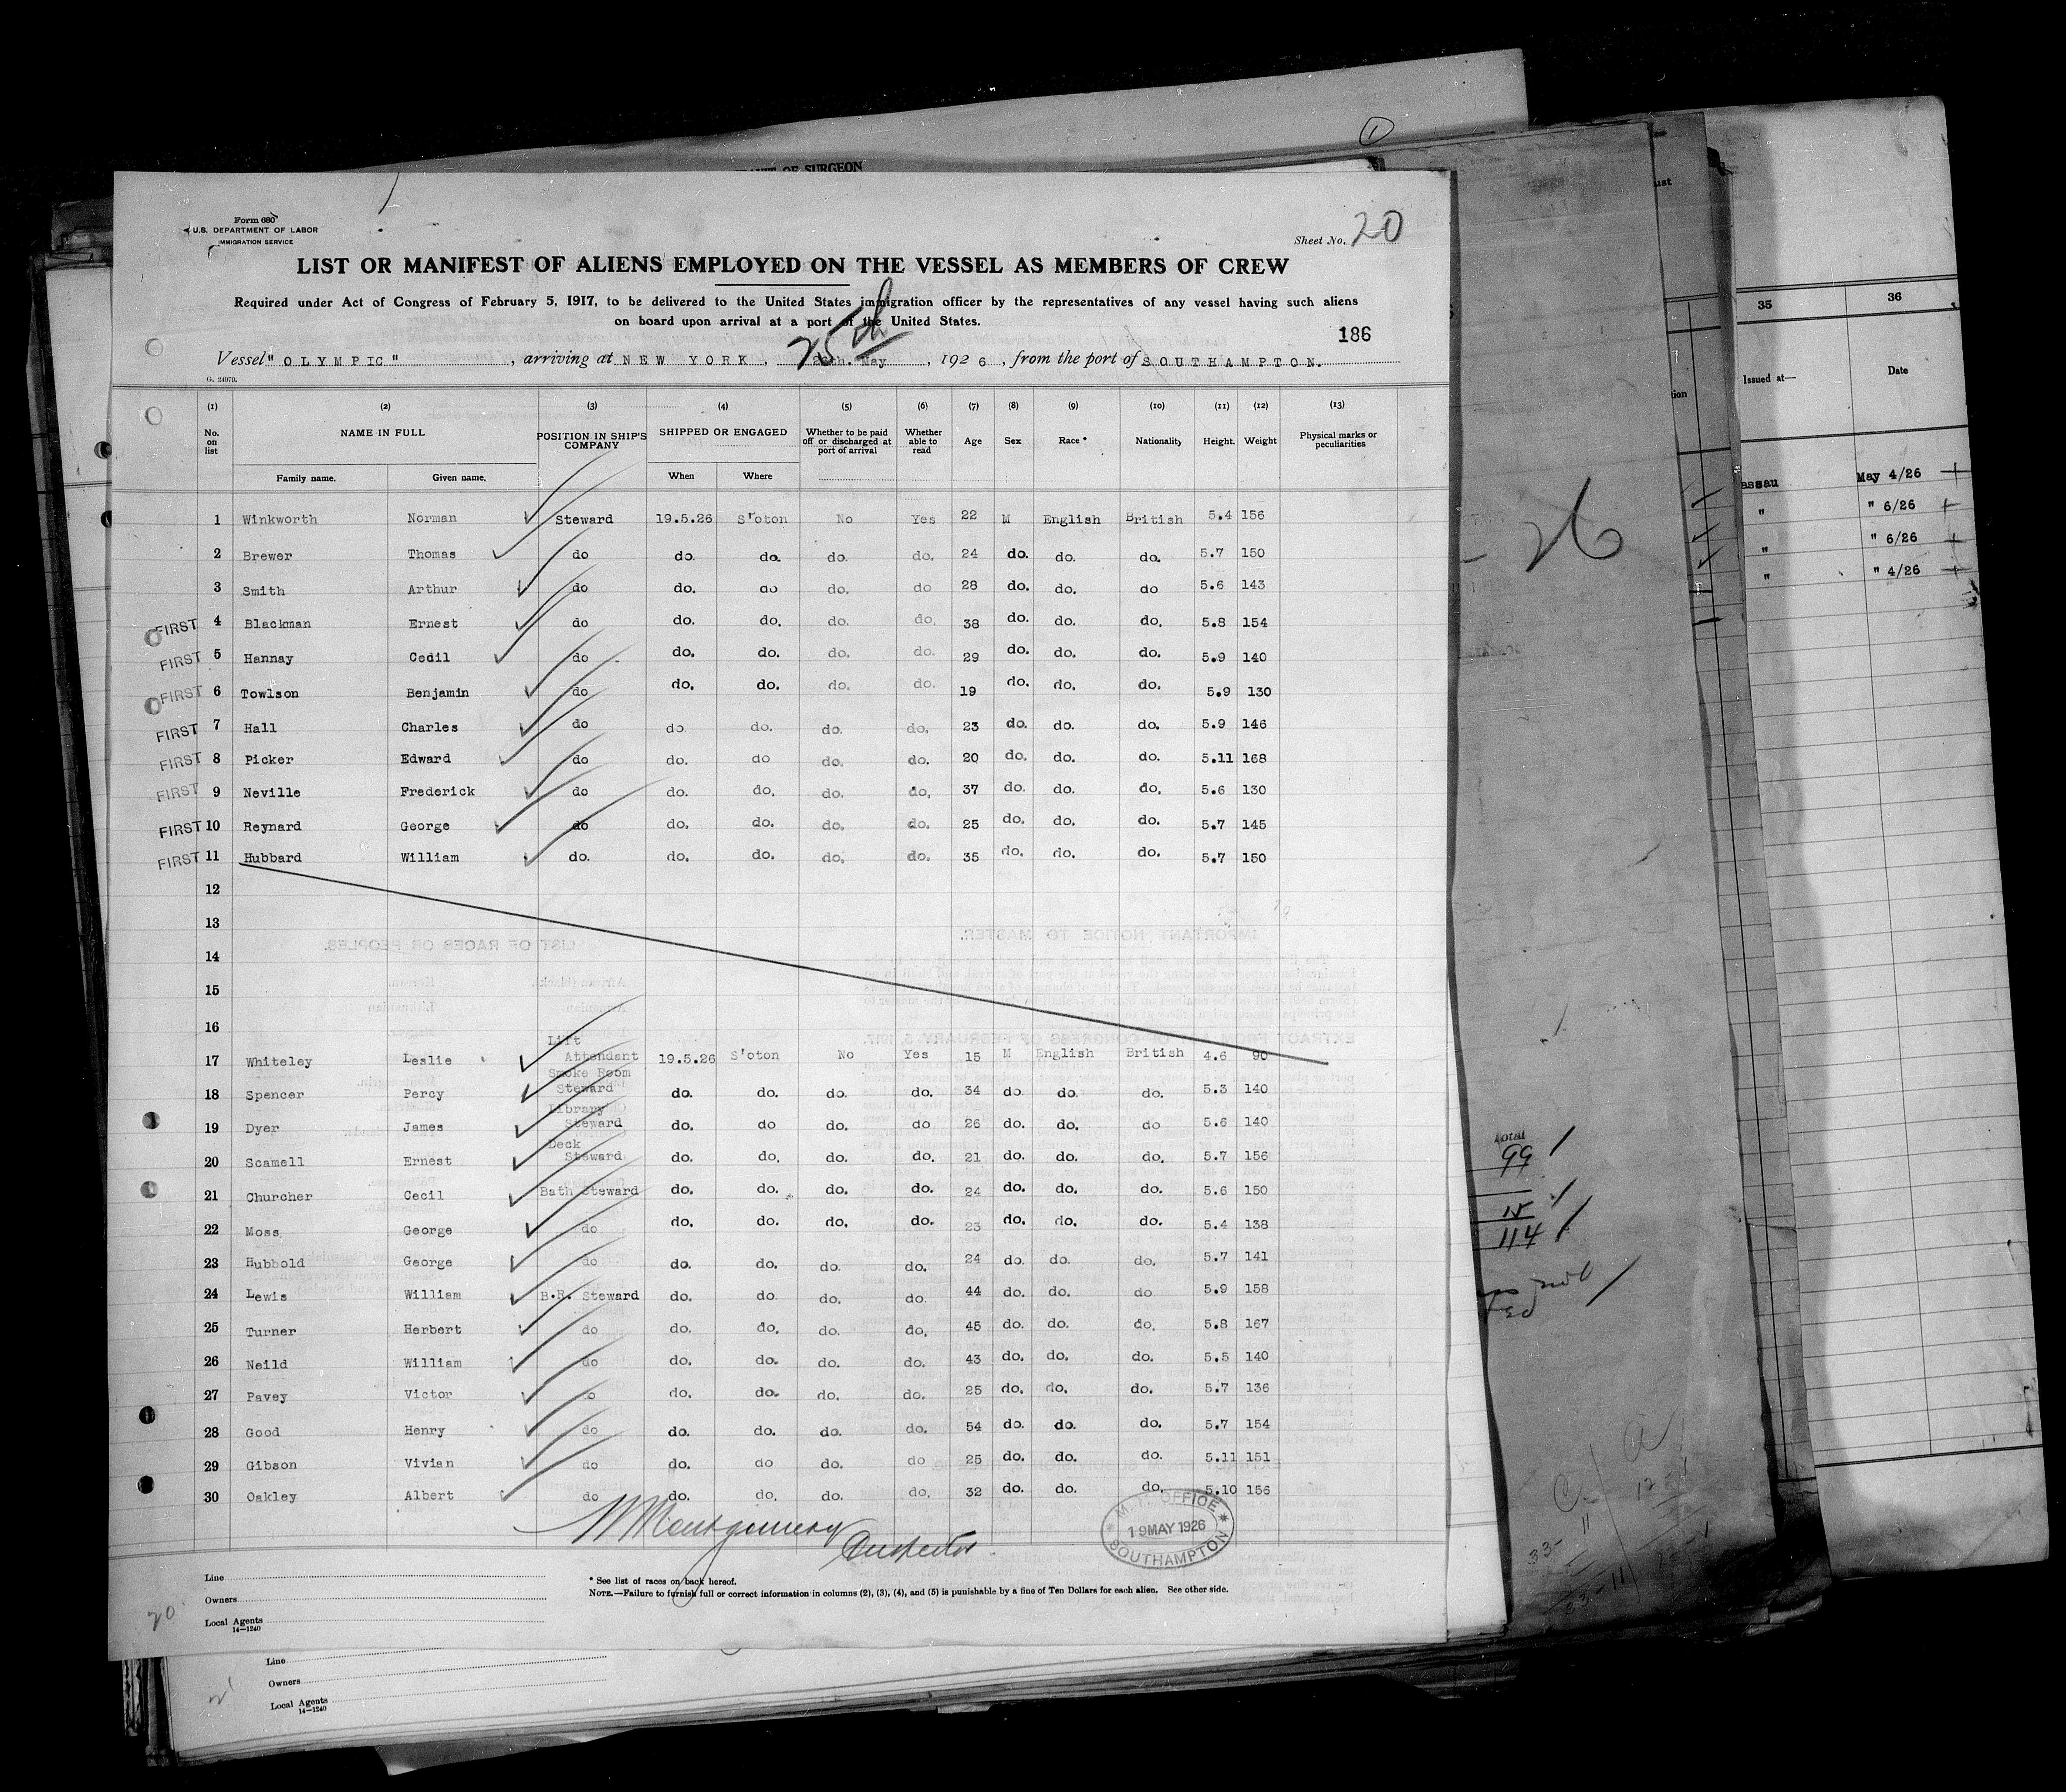 ①
OF SURGEON
Form 680
U.S. DEPARTMENT OF LABOR
IMMIGRATION SERVICE
Sheet No. 20
LIST OR MANIFEST OF ALIENS EMPLOYED ON THE VESSEL AS MEMBERS OF CREW
Required under Act of Congress of February 5, 1917, to be delivered to the United States immigration officer by the representatives of any vessel having such aliens
on board upon arrival at a port of the United States.
186
25th
Vessel "OLYMPIC", arriving at NEW YORK, May, 1926, from the port of SOUTHAMPTON.
G. 24979.
(1) (2) (3) (4) (5) (6) (7) (8) (9) (10) (11) (12) (13)
No. on list NAME IN FULL POSITION IN SHIP'S COMPANY SHIPPED OR ENGAGED Whether to be paid off or discharged at port of arrival Whether able to read Age Sex Race * Nationality Height. Weight Physical marks or peculiarities
Family name. Given name. When Where
1 Winkworth Norman Steward 19.5.26 S'oton No Yes 22 M English British 5.4 156
2 Brewer Thomas do do. do. do. do. 24 do. do. do. 5.7 150
3 Smith Arthur do do. do do. do 28 do. do. do 5.6 143
FIRST 4 Blackman Ernest do do. do. do. do. 38 do. do. do. 5.8 154
FIRST 5 Hannay Cedil do do. do. do. do. 29 do. do. do. 5.9 140
FIRST 6 Towlson Benjamin do do. do. do. do. 19 do. do. do. 5.9 130
FIRST 7 Hall Charles do do. do. do. do. 23 do. do. do. 5.9 146
FIRST 8 Picker Edward do do. do do. do. 20 do. do. do. 5.11 168
FIRST 9 Neville Frederick do do. do. do. do. 37 do. do. do. 5.6 130
FIRST 10 Reynard George do do. do. do. do. 25 do. do. do. 5.7 145
FIRST 11 Hubbard William do. do. do. do. do. 35 do. do. do. 5.7 150
12
13
14
15
16
17 Whiteley Leslie Lift Attendant 19.5.26 S'oton No Yes 15 M English British 4.6 90
18 Spencer Percy Smoke Room Steward do. do. do. do. 34 do. do. do. 5.3 140
19 Dyer James Library Steward do. do do. do 26 do. do. do 5.6 140
20 Scamell Ernest Deck Steward do. do. do. do. 21 do. do. do. 5.7 156
21 Churcher Cecil Bath Steward do. do. do. do. 24 do. do. do. 5.6 150
22 Moss George do do. do. do. do. 23 do. do. do. 5.4 138
23 Hubbold George do do. do. do. do. 24 do. do. do. 5.7 141
24 Lewis William B.R. Steward do. do do. do. 44 do. do. do 5.9 158
25 Turner Herbert do do. do. do. do. 45 do. do. do. 5.8 167
26 Neild William do do. do. do. do. 43 do. do. do. 5.5 140
27 Pavey Victor do do. do. do. do. 25 do. do. do. 5.7 136
28 Good Henry do do. do. do. do. 54 do. do. do. 5.7 154
29 Gibson Vivian do do. do do. do 25 do. do. do. 5.11 151
30 Oakley Albert do do. do. do. do. 32 do. do. do. 5.10 156
Montgomery
Inspector
OFFICE
19 MAY 1926
SOUTHAMPTON
Line
Owners
Local Agents
14—1240
* See list of races on back hereof.
NOTE.—Failure to furnish full or correct information in columns (2), (3), (4), and (5) is punishable by a fine of Ten Dollars for each alien. See other side.
20
Line
Owners
Local Agents
14—1240
26
total
99
15
114
35 36
Issued at— Date
assau May 4/26
" " 6/26
" " 6/26
" " 4/26